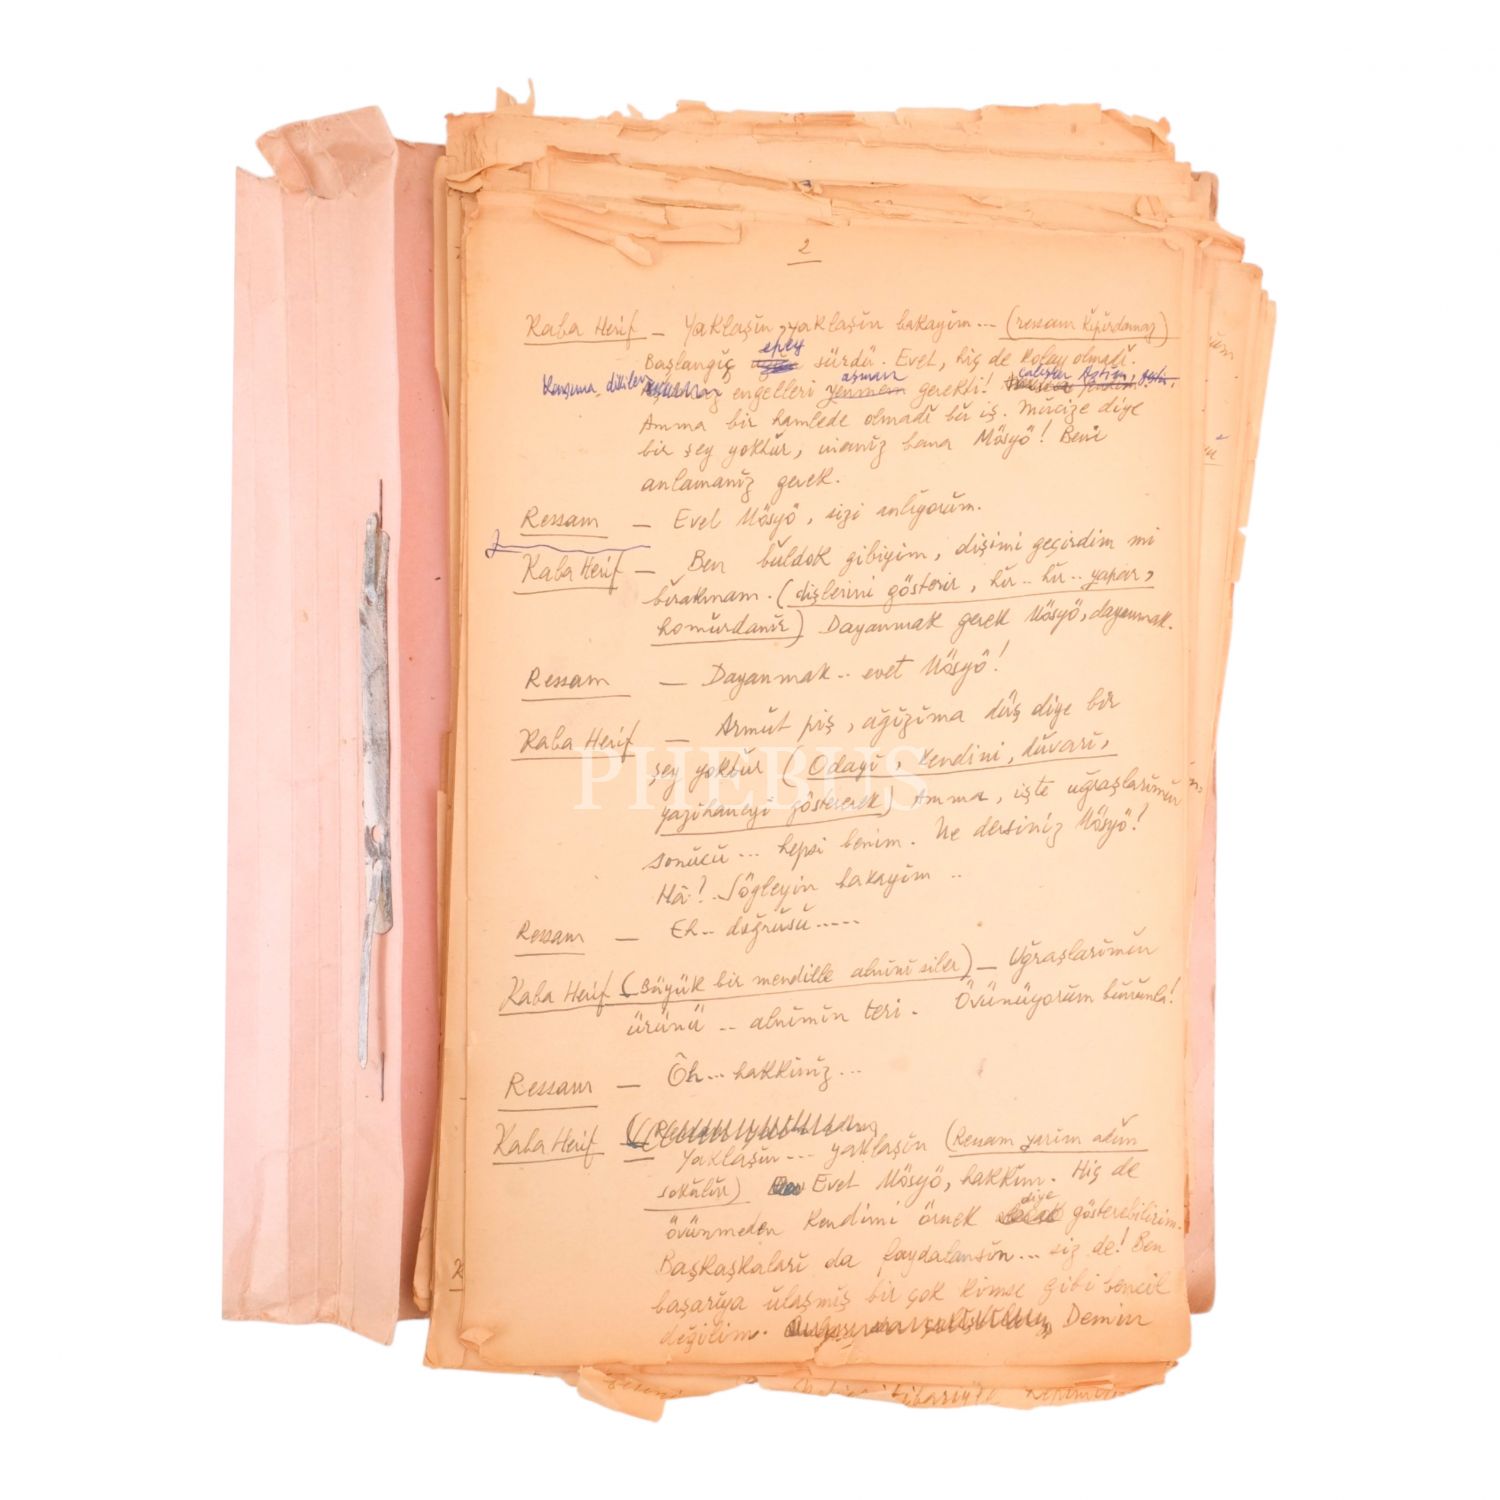 2
Kaba Herif — Yaklaşın, yaklaşın bakayım... (ressam kıpırdamaz)
epey
Başlangıç sürdü. Evet, hiç de kolay olmadı.
Karşıma dikilen aşmam çalıştım
engelleri yenmem gerekti!
Amma bir hamlede olmadı bu iş. Mûcize diye
bir şey yoktur, inanız bana Mösyö! Beni
anlamanız gerek.
Ressam — Evet Mösyö, sizi anlıyorum.
Kaba Herif — Ben buldok gibiyim, dişimi geçirdim mi
bırakmam. (dişlerini gösterir, hır.. hır.. yapar,
homurdanır) Dayanmak gerek Mösyö, dayanmak.
Ressam — Dayanmak.. evet Mösyö!
Kaba Herif — Armut piş, ağızıma düş diye bir
şey yoktur (Odayı, kendini, duvarı,
yazıhaneyi göstererek) Amma, işte uğraşlarımın
sonucu... hepsi benim. Ne dersiniz Mösyö?
Hâ? Söyleyin bakayım ..
Ressam — Eh.. doğrusu.....
Kaba Herif (Büyük bir mendille alnını siler) — Uğraşlarımın
ürünü .. alnımın teri. Övünüyorum bununla!
Ressam — Öh... hakkınız...
Kaba Herif
Yaklaşın... yaklaşın (Ressam yarım adım
sokulur) Evet Mösyö, hakkım. Hiç de
diye
övünmeden kendimi örnek gösterebilirim.
Başkaşkaları da faydalansın... siz de! Ben
başarıya ulaşmış bir çok kimse gibi bencil
değilim. Demin
PHEBUS